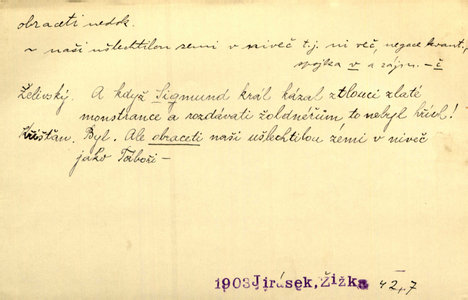 obraceti nedok.
~ naši ušlechtilou zemi v niveč t.j. ni več, negace kvant.,
spojka v a zájm. -č
Želivský. A když Sigmund král kázal ztlouci zlaté
monstrance a rozdávati žoldnéřům to nebyl hřích!
Křišťan. Byl. Ale obraceti naši ušlechtilou zemi v niveč
jako Táboři —
1903 Jirásek, Žižka 42,7